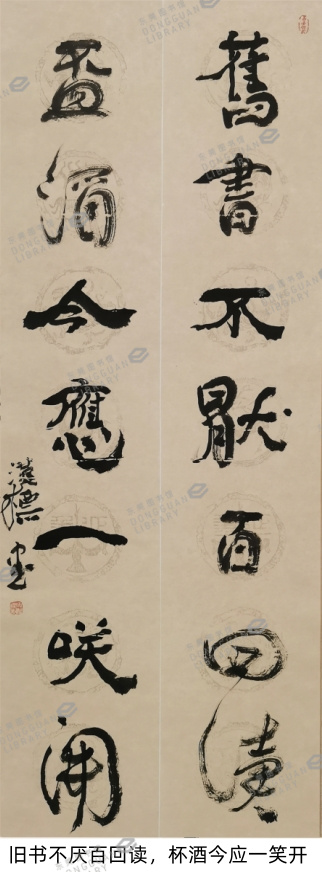 舊書不厭百回讀
盃酒今應一咲開
漢標書
旧书不厌百回读，杯酒今应一笑开
東莞圖書館
DONGGUAN LIBRARY